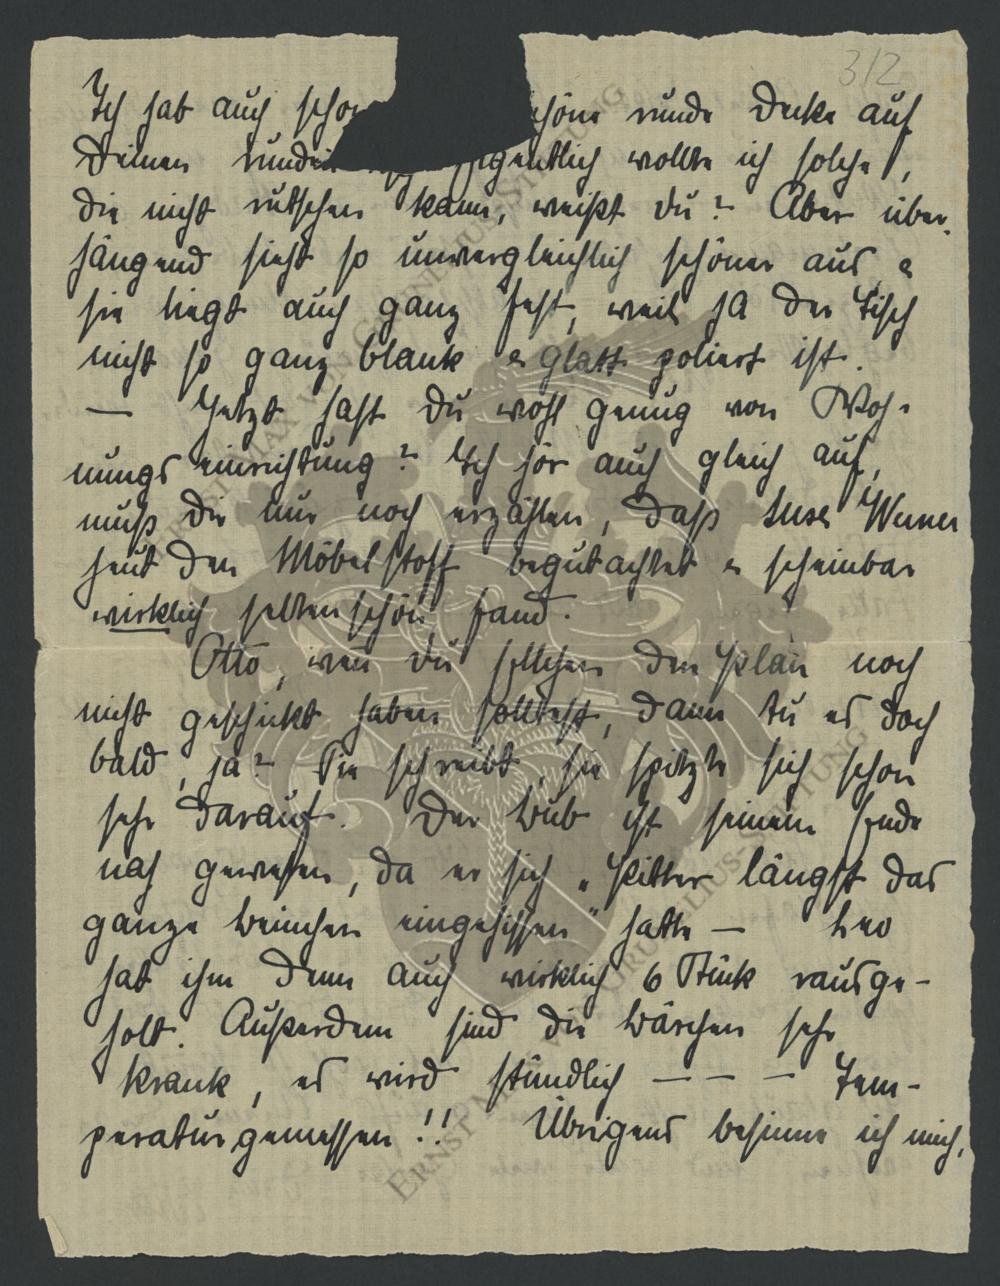 312
Ich hab auch schon schöne runde Decke auf
Deinen runden eigentlich wollte ich solche,
die nicht rutschen kann, weißt Du? Aber über-
hängend sieht so unvergleichlich schöner aus &
sie liegt auch ganz fest, weil ja der Tisch
nicht so ganz blank & glatt poliert ist.
— Jetzt hast Du wohl genug von Woh-
nungseinrichtung? Ich hör auch gleich auf,
muß Dir nur noch erzählen, daß Suse Werner
heut den Möbelstoff begutachtet & scheinbar
wirklich selten schön fand.
Otto, wen Du den Plan noch
nicht geschickt haben solltest, dann tu es doch
bald, ja? Sie schreibt, sie spitzte sich schon
sehr darauf. Der Bub ist seinem Ende
nah gewesen, da er sich „Splitter längst das
ganze Beinchen eingehissen" hatte — Leo
hat ihm denn auch wirklich 6 Stück rausge-
holt. Außerdem sind die Bärchen sehr
krank, es wird stündlich — — — Tem-
peratur gemessen!! Übrigens besinne ich mich,
ERNST MAX VON GRUNELIUS-STIFTUNG
ERNST MAX VON GRUNELIUS-STIFTUNG